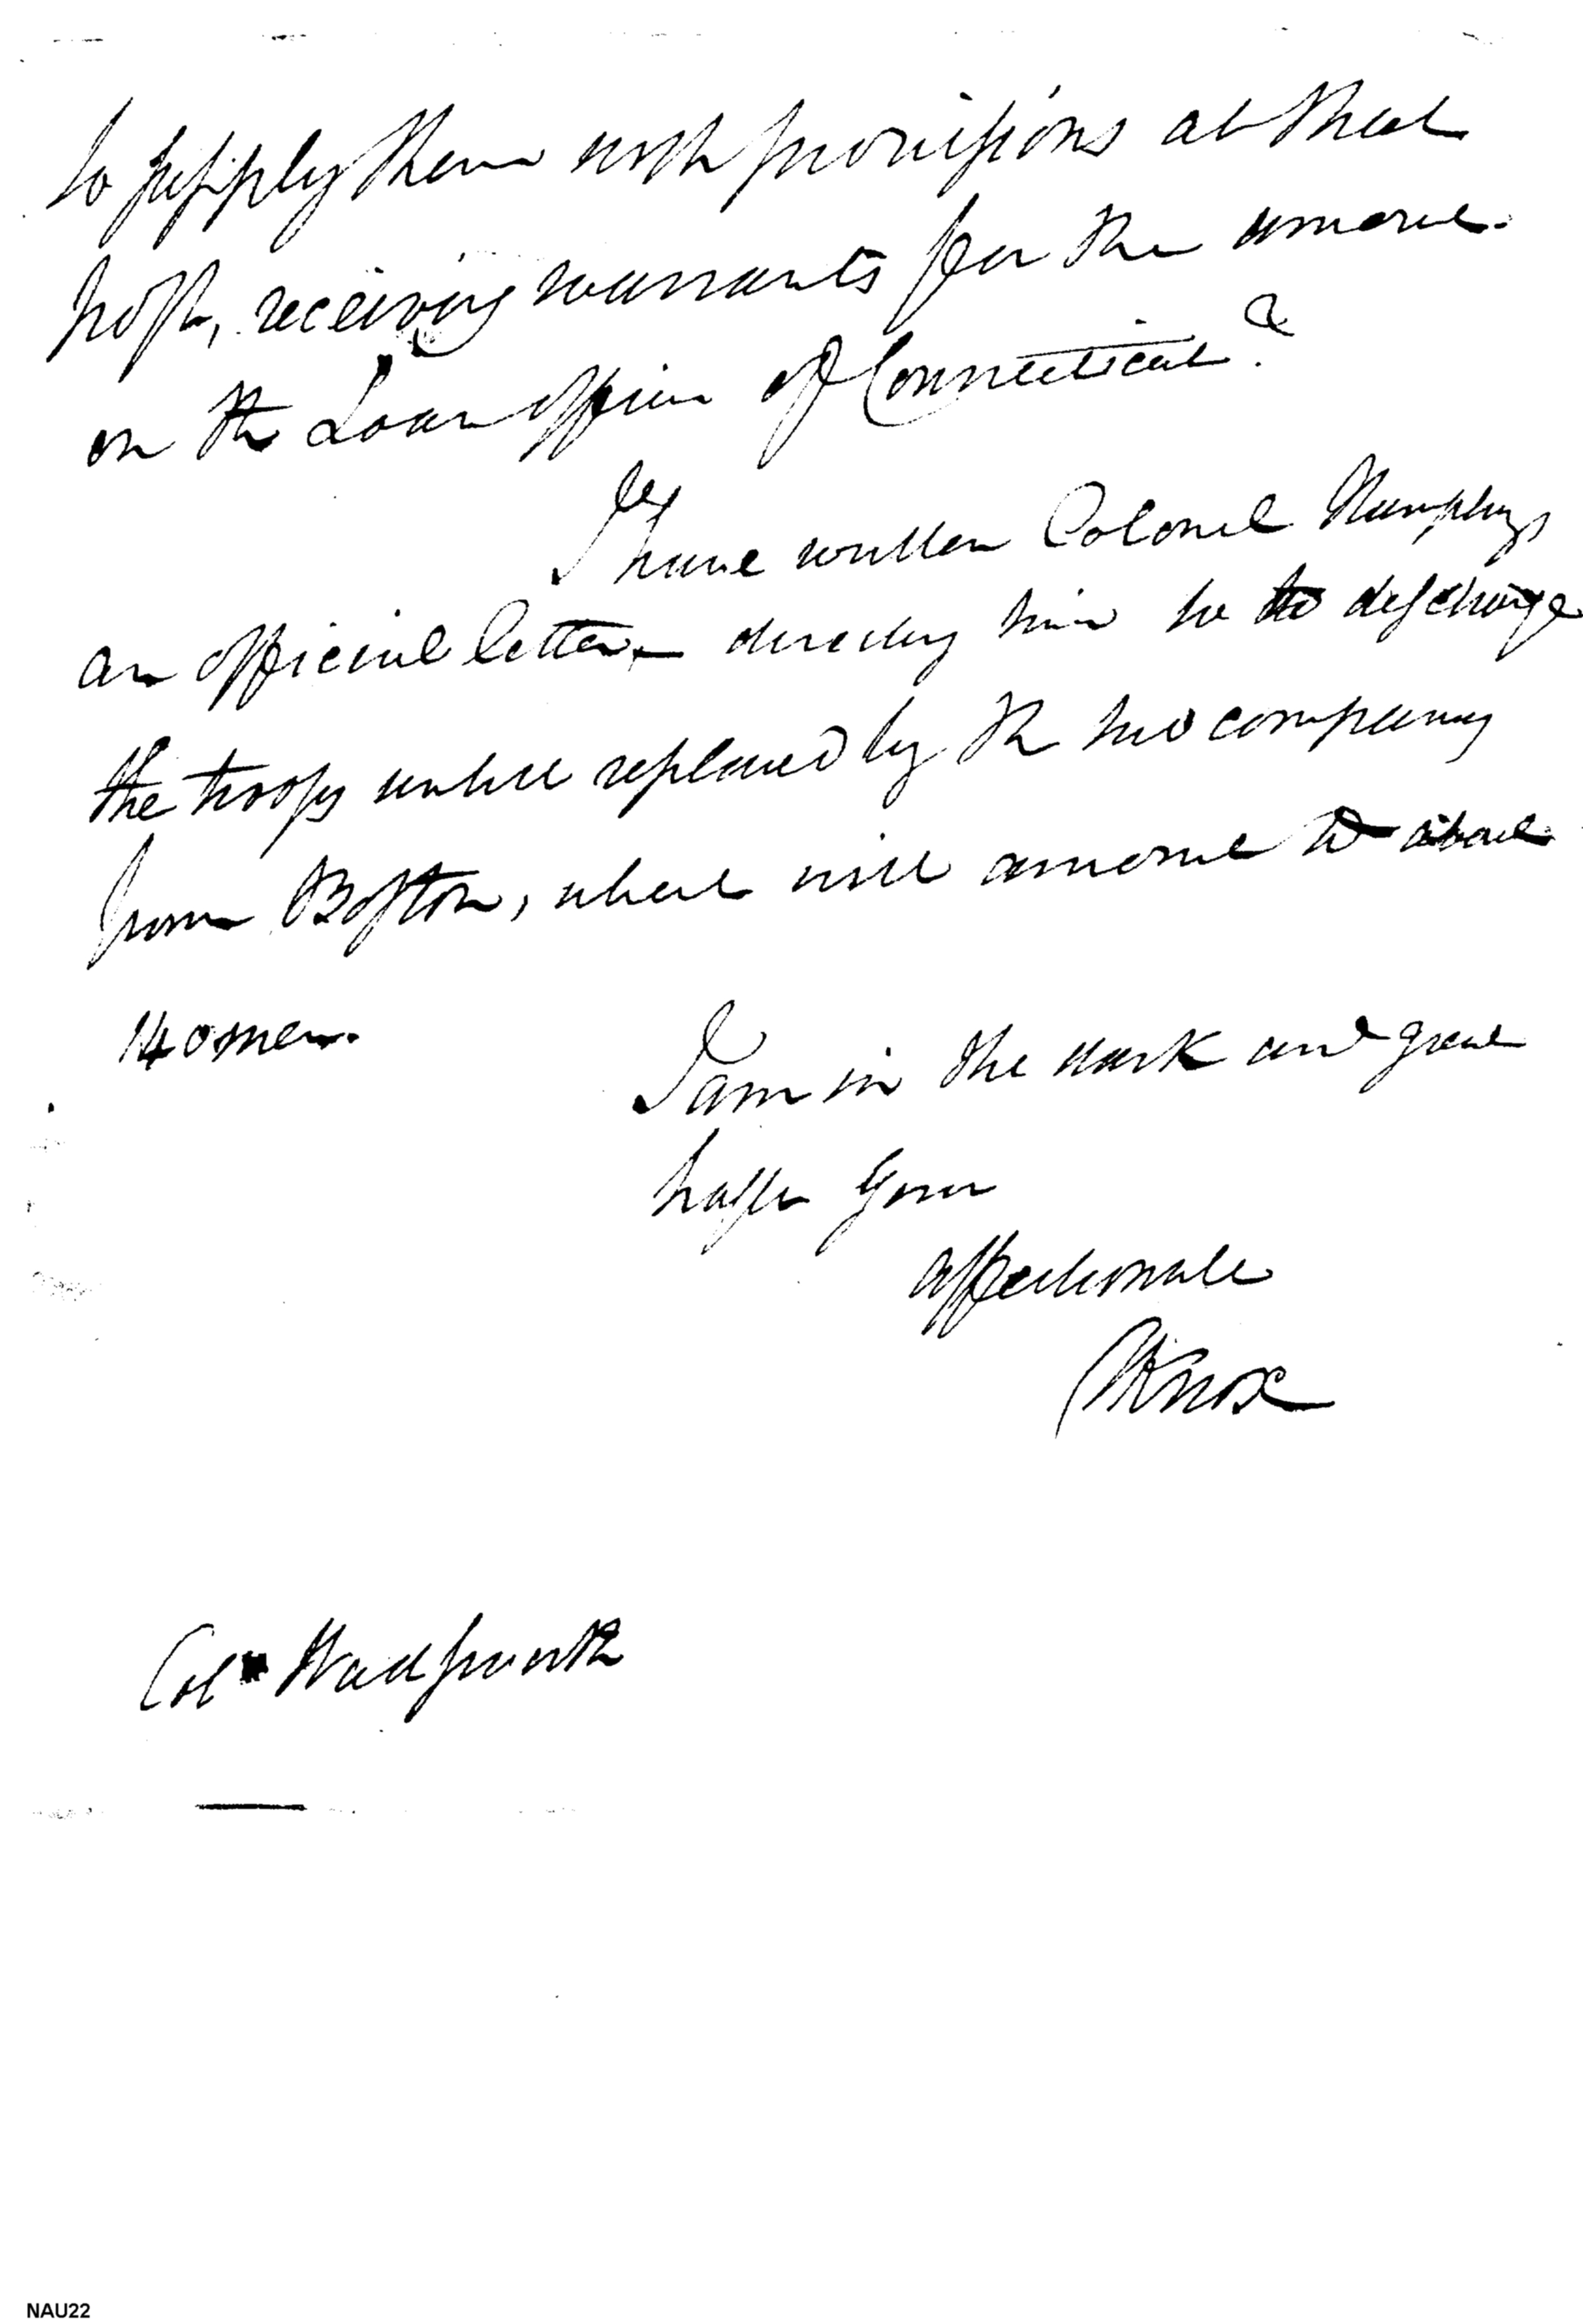 to supply them with provisions at that
post, receiving warrants for the amount
on the Loan officer of Connecticut?
I have written Colonel Humphrys
an official letter, directing him to discharge
the troops untill replaced by the two companys
from Boston, which will amount to about
140 men.
I am in the mark and great
haste Your
affectionate
HKnox
Col Wadsworth
NAU22